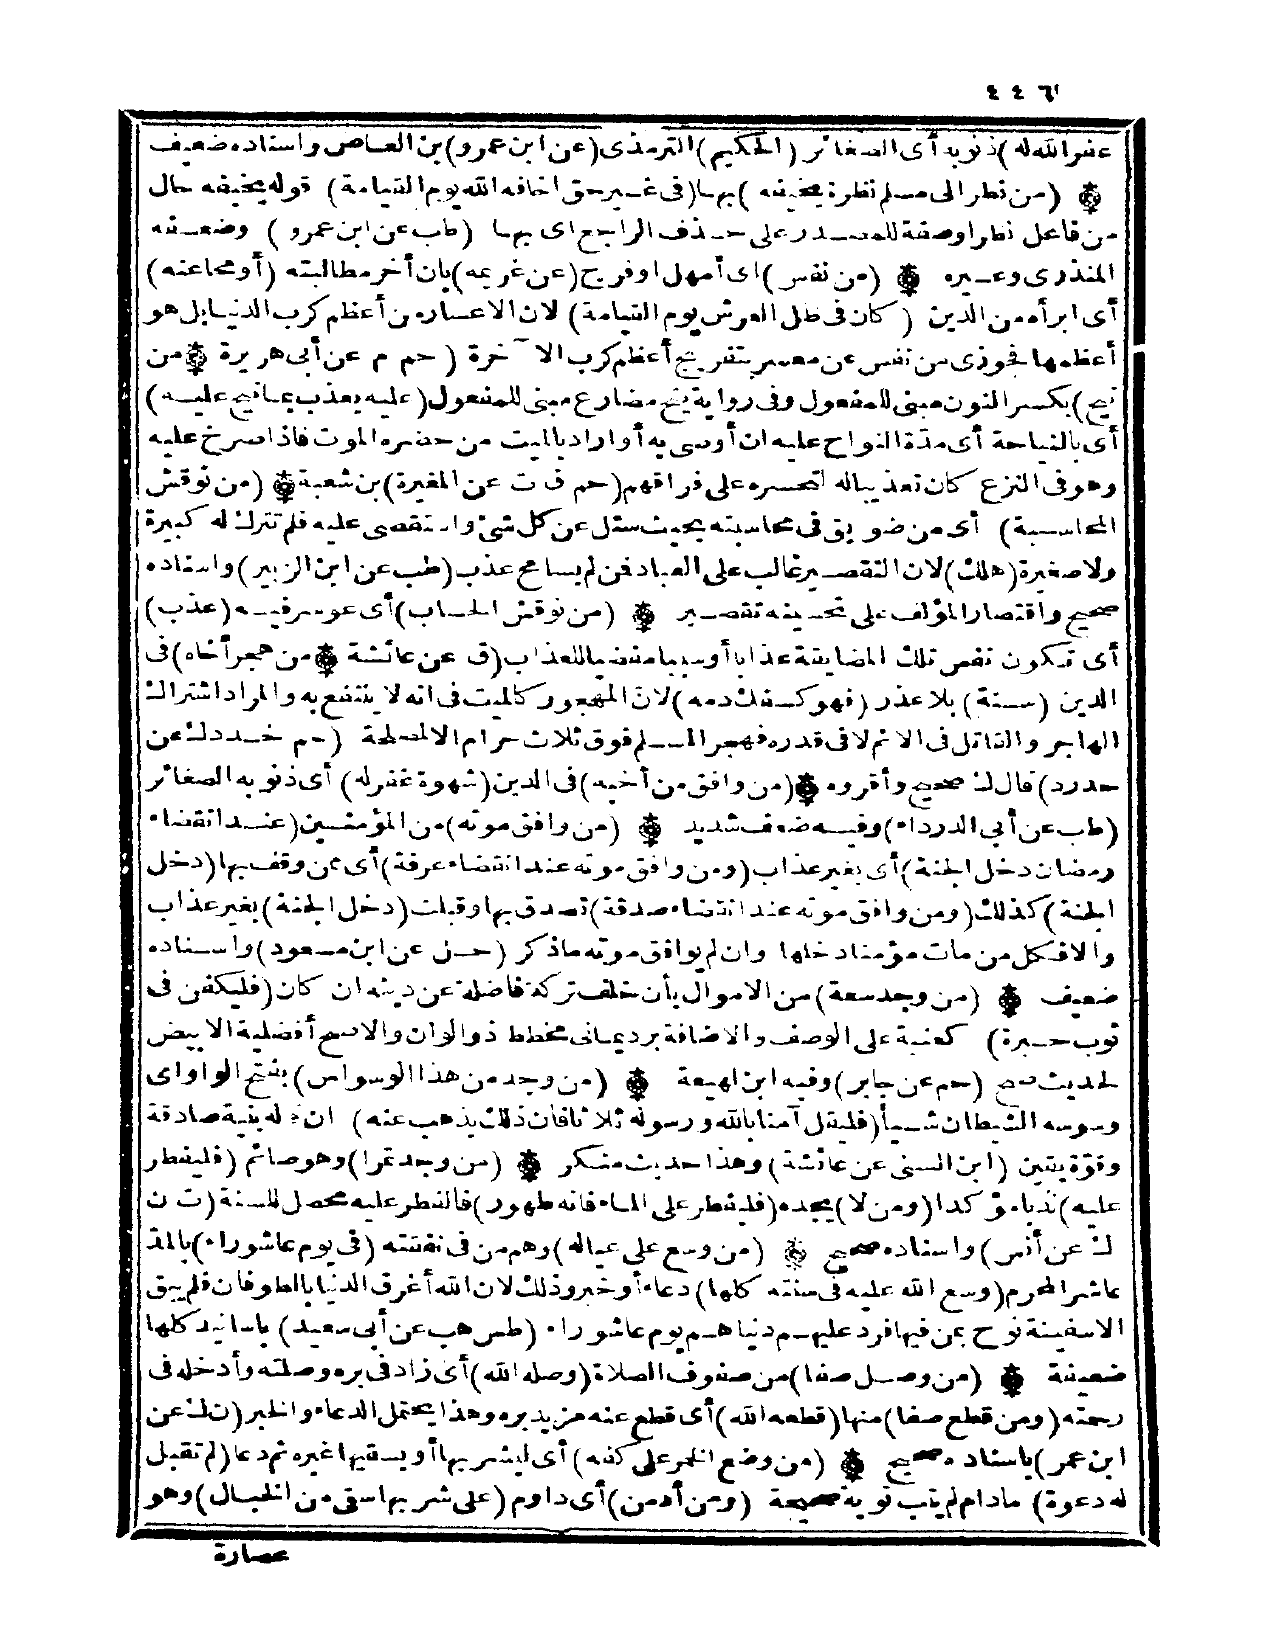 ٤٤٦
غفر الله له) ذنوبه أى الصغائر (الحكيم) الترمذى (عن ابن عمرو) بن العاص واسناده ضعيف
❁ (من نظر الى مسلم نظرة يخيفه) بها (فى غير حق اخافه الله يوم القيامة) قوله يخيفه حال
من فاعل نظر اوصفة للمصدر على حذف الراجع اى بها (طب عن ابن عمرو) وضعفه
المنذرى وغيره ❁ (من نفس) اى أمهل او فرج (عن غريمه) بان أخر مطالبته (أو محا عنه)
أى ابرأه من الدين (كان فى ظل العرش يوم القيامة) لان الاعسار من أعظم كرب الدنيا بل هو
أعظمها فجوزى من نفس عن معسر بتفريج أعظم كرب الآخرة (حم م عن أبى هريرة ❁ من
نيح) بكسر النون مبنى للمفعول وفى رواية ينح مضارع مبنى للمفعول (عليه يعذب بما نيح عليه)
أى بالنياحة أى مدة النواح عليه ان أوصى به أو اراد بالميت من حضره الموت فاذا صرخ عليه
وهو فى النزع كان تعذيبا له لتحسره على فراقهم (حم ق ت عن المغيرة) بن شعبة ❁ (من نوقش
المحاسبة) أى من ضويق فى محاسبته بحيث سئل عن كل شئ واستقصى عليه فلم تترك له كبيرة
ولا صغيرة (هلك) لان التقصير غالب على العباد فمن لم يسامح عذب (طب عن ابن الزبير) واسناده
صحيح واقتصار المؤلف على تحسينه تقصير ❁ (من نوقش الحساب) أى عوسر فيه (عذب)
أى تكون نفس تلك المضايقة عذابا أو سببا مفضيا للعذاب (ق عن عائشة ❁ من هجر أخاه) فى
الدين (سنة) بلا عذر (فهو كسفك دمه) لان المهجور كالميت فى انه لا ينتفع به والمراد اشتراك
الهاجر والقاتل فى الاثم لا فى قدره فهجر المسلم فوق ثلاث حرام الا لمصلحة (حم خد د ك عن
حدرد) قال ك صحيح وأقروه ❁ (من وافق من أخيه) فى الدين (شهوة غفر له) أى ذنوبه الصغائر
(طب عن أبى الدرداء) وفيه ضعف شديد ❁ (من وافق موته) من المؤمنين (عند انقضاء
رمضان دخل الجنة) أى بغير عذاب (ومن وافق موته عند انقضاء عرفة) أى ممن وقف بها (دخل
الجنة) كذلك (ومن وافق موته عند انقضاء صدقة) تصدق بها وقبلت (دخل الجنة) بغير عذاب
والا فكل من مات مؤمنا دخلها وان لم يوافق موته ما ذكر (حل عن ابن مسعود) واسناده
ضعيف ❁ (من وجد سعة) من الاموال بأن خلف تركة فاضلة عن دينه ان كان (فليكفن فى
ثوب حبرة) كعنبة على الوصف والاضافة برد يمانى مخطط ذو الوان والاصح أفضلية الابيض
لحديث صح (حم عن جابر) وفيه ابن لهيعة ❁ (من وجد من هذا الوسواس) بفتح الواو اى
وسوسة الشيطان شيأ (فليقل آمنا بالله ورسوله ثلاثا فان ذلك يذهب عنه) ان قاله بنية صادقة
وقوة يقين (ابن السنى عن عائشة) وهذا حديث منكر ❁ (من وجد تمرا) وهو صائم (فليفطر
عليه) ندبا مؤكدا (ومن لا) يجده (فليفطر على الماء فانه طهور) فالفطر عليه محصل للسنة (ت ن
ك عن أنس) واسناده صحيح ❁ (من وسع على عياله) وهم من فى نفقته (فى يوم عاشوراء) بالمد
عاشر المحرم (وسع الله عليه فى سنته كلها) دعاء أو خبر وذلك لان الله أغرق الدنيا بالطوفان فلم يبق
الا سفينة نوح بمن فيها فرد عليهم دنياهم يوم عاشوراء (طس هب عن أبى سعيد) باسانيد كلها
ضعيفة ❁ (من وصل صفا) من صفوف الصلاة (وصله الله) أى زاد فى بره وصلته وأدخله فى
رحمته (ومن قطع صفا) منها (قطعه الله) أى قطع عنه مزيد بره وهذا يحتمل الدعاء والخبر (ن ك عن
ابن عمر) باسناد صحيح ❁ (من وضع الخمر على كفه) أى ليشربها أو يسقيها غيره ثم دعا (لم تقبل
له دعوة) ما دام لم يتب توبة صحيحة (ومن أدمن) أى داوم (على شربها سقى من الخبال) وهو
عصارة